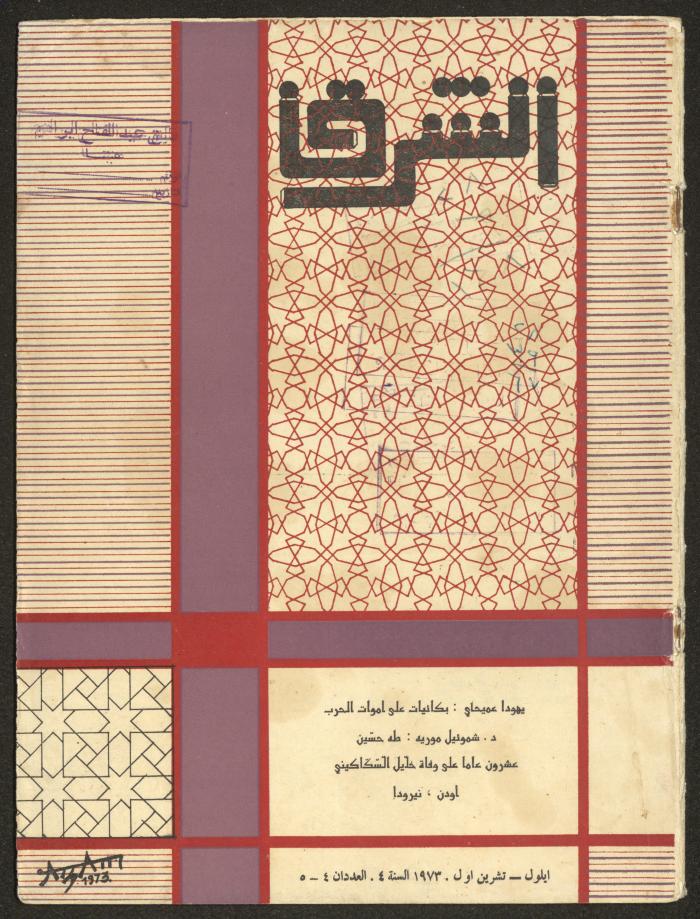 الشرق
يهودا عميحاي : بكائيات على اموات الحرب
د. شموئيل موريه : طه حسين
عشرون عاما على وفاة خليل السكاكيني
اودن ، نيرودا
ايلول — تشرين اول . ١٩٧٣ السنة ٤ . العددان ٤ – ٥
1973.